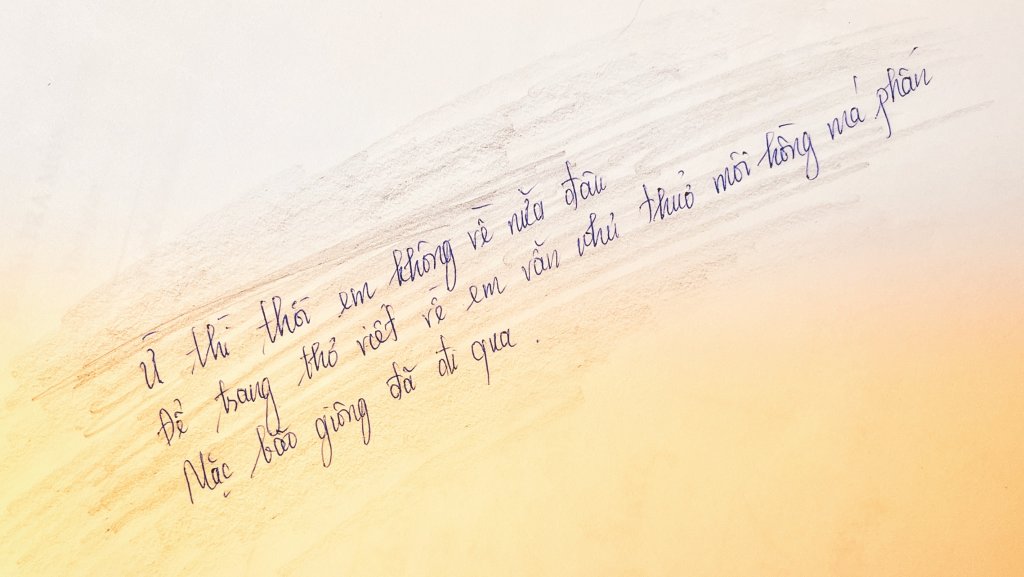 Ừ thì thôi em không về nữa đâu
Để trang thơ viết về em vẫn như thuở môi hồng má phấn
Mặc bão giông đã đi qua.